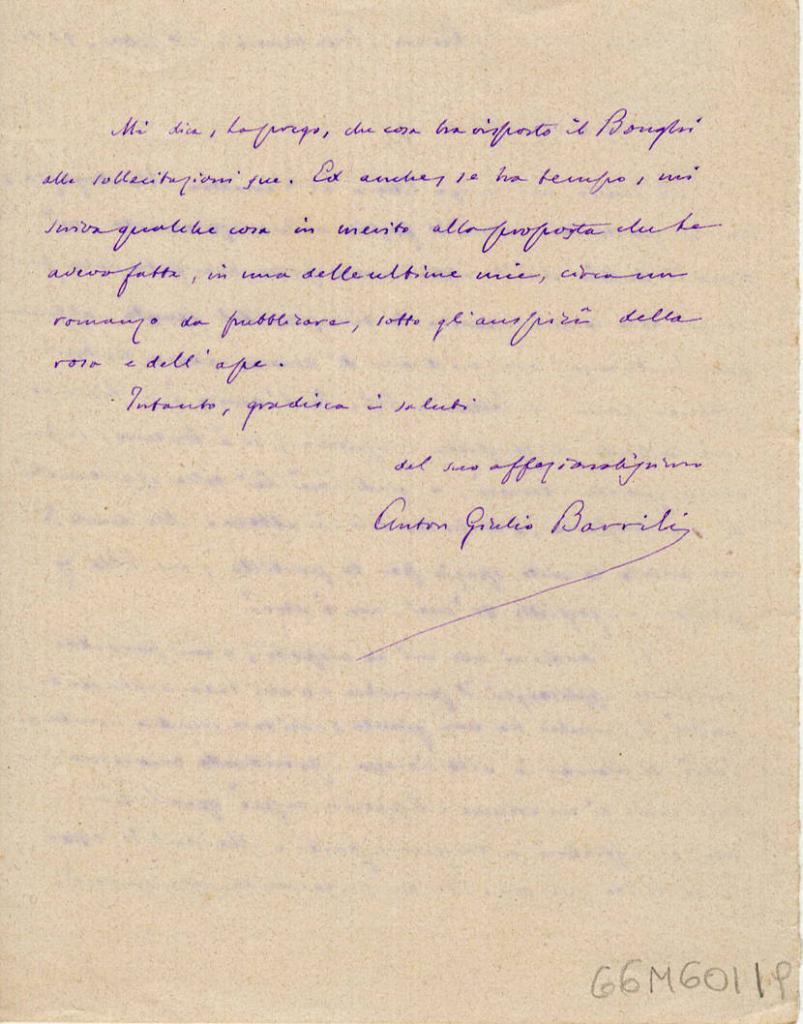 Mi dica, La prego, che cosa ha risposto il Bonghi
alle sollecitazioni sue. Ed anche, se ha tempo, mi
scriva qualche cosa in merito alla proposta che Le
avevo fatta, in una delle ultime mie, circa un
romanzo da pubblicare, sotto gli auspicii della
rosa e dell'ape.
Intanto, gradisca i saluti
del suo affezionatissimo
Anton Giulio Barrili
66M60119